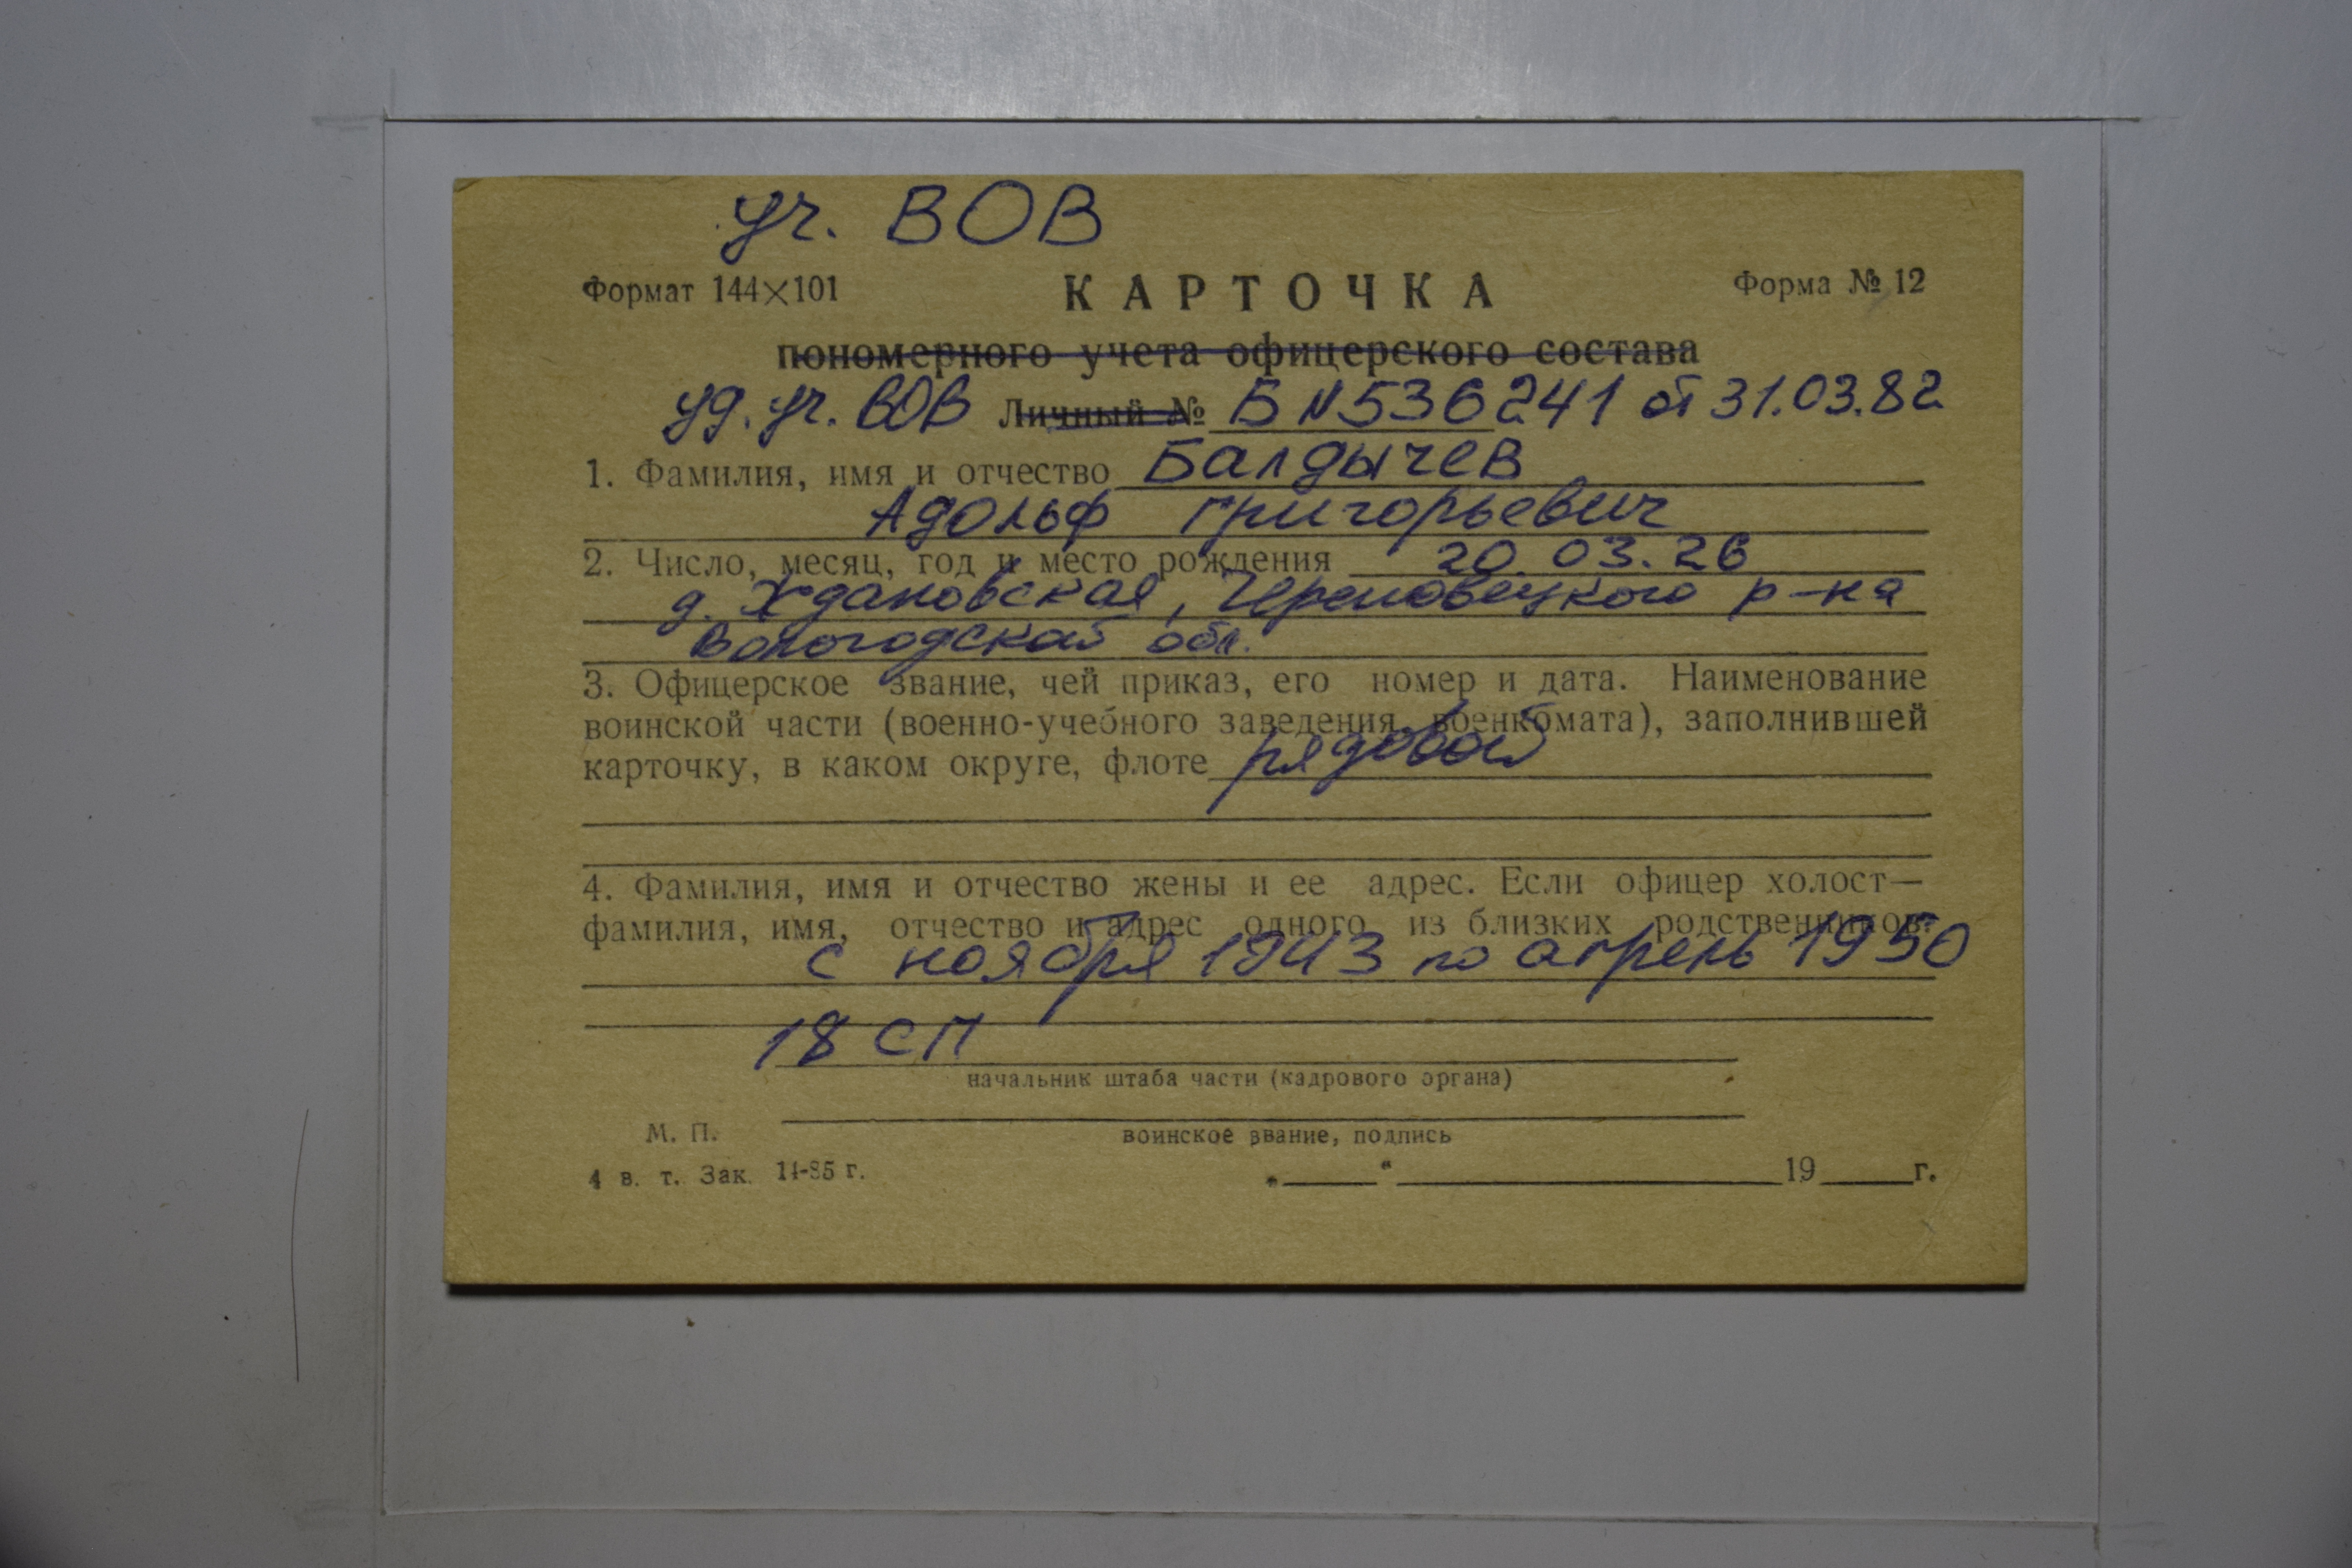 уч. ВОВ
Формат 144×101 КАРТОЧКА Форма № 12
пономерного учета офицерского состава
уд. уч. ВОВ Личный № Б N536241 от 31.03.82
1. Фамилия, имя и отчество Балдычев
Адольф Григорьевич
2. Число, месяц, год и место рождения 20.03.26
д. Ждановская, Череповецкого р-на
Вологодской обл.
3. Офицерское звание, чей приказ, его номер и дата. Наименование
воинской части (военно-учебного заведения, военкомата), заполнившей
карточку, в каком округе, флоте рядовой
4. Фамилия, имя и отчество жены и ее адрес. Если офицер холост—
фамилия, имя, отчество и адрес одного из близких родственников:
с ноября 1943 по апрель 1950
18 СП
начальник штаба части (кадрового органа)
М. П. воинское звание, подпись
4 в. т. Зак. 14-85 г. „ “ 19 г.